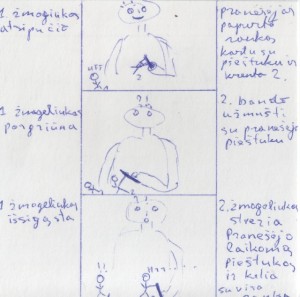 1 žmogiukas
atripučio
pranešėjas
papurto
rankas
kartu su
pieštuku ir
krenta 2.
!!?
2
1
1 žmogeliukas
pargriūna
2. bando
užmušti
su pranešėjo
pieštuku
?!
1 žmogeliukas
išsigąsta
2. žmogeliukas
pranešėjo
laikomą
pieštukas
ir kelia
su viso
?!
!!?